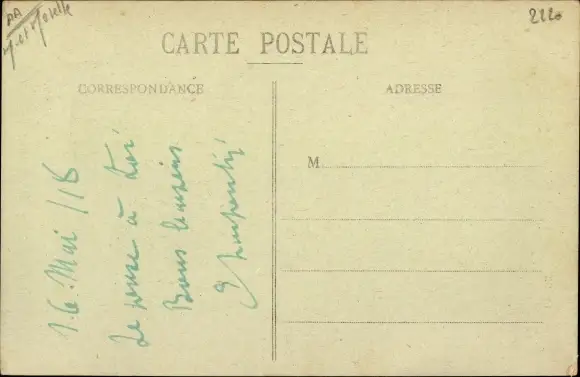 AA
2120
CARTE POSTALE
CORRESPONDANCE
ADRESSE
M
16 Mai /18
Je pense à toi
Bons baisers